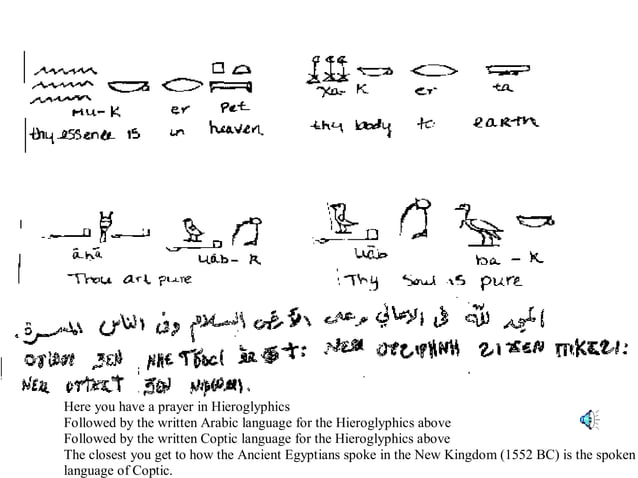 MU-K er Pet
thy essence is in heaven
Xa-K er ta
thy body to earth
ānā uāb-K
Thou art pure
uāb ba-K
Thy Soul is pure
المجد لله فى الاعالي وعلى الأرض السلام وفى الناس المسرة.
Here you have a prayer in Hieroglyphics
Followed by the written Arabic language for the Hieroglyphics above
Followed by the written Coptic language for the Hieroglyphics above
The closest you get to how the Ancient Egyptians spoke in the New Kingdom (1552 BC) is the spoken
language of Coptic.